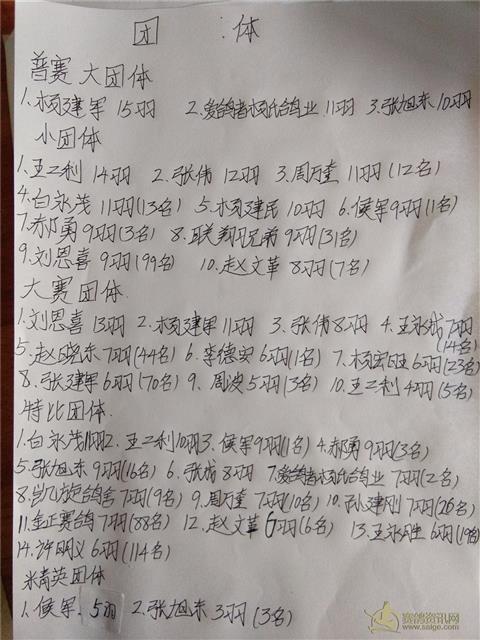 团体
普赛大团体
1.杨建军 15羽 2.爱鸽者杨氏鸽业 11羽 3.张旭东 10羽
小团体
1.王二利 14羽 2.张伟 12羽 3.周万奎 11羽(12名)
4.白永茂 11羽(13名) 5.杨建民 10羽 6.侯军 9羽(1名)
7.郝勇 9羽(3名) 8.联翔兄弟 9羽(31名)
9.刘恩喜 9羽(99名) 10.赵文革 8羽(7名)
大赛团体
1.刘恩喜 13羽 2.杨建军 11羽 3.张伟 8羽 4.王永成 7羽(14名)
5.赵晓东 7羽(44名) 6.李德安 6羽(1名) 7.杨宏旺 6羽(23名)
8.张建军 6羽(70名) 9.周波 5羽(3名) 10.王二利 4羽(5名)
特比团体.
1.白永茂 11羽 2.王二利 10羽 3.侯军 9羽(1名) 4.郝勇 9羽(3名)
5.张旭东 9羽(16名) 6.张成 8羽 7.爱鸽者杨氏鸽业 7羽(2名)
8.凯旋鸽舍 7羽(9名) 9.周万奎 7羽(10名) 10.孙建刚 7羽(26名)
11.金正赛鸽 7羽(88名) 12.赵文革 6羽(6名) 13.王永胜 6羽(19名)
14.许明义 6羽(114名)
米青英团体
1.侯军.5羽 2.张旭东 3羽(3名)
赛鸽资讯网
www.saige.com